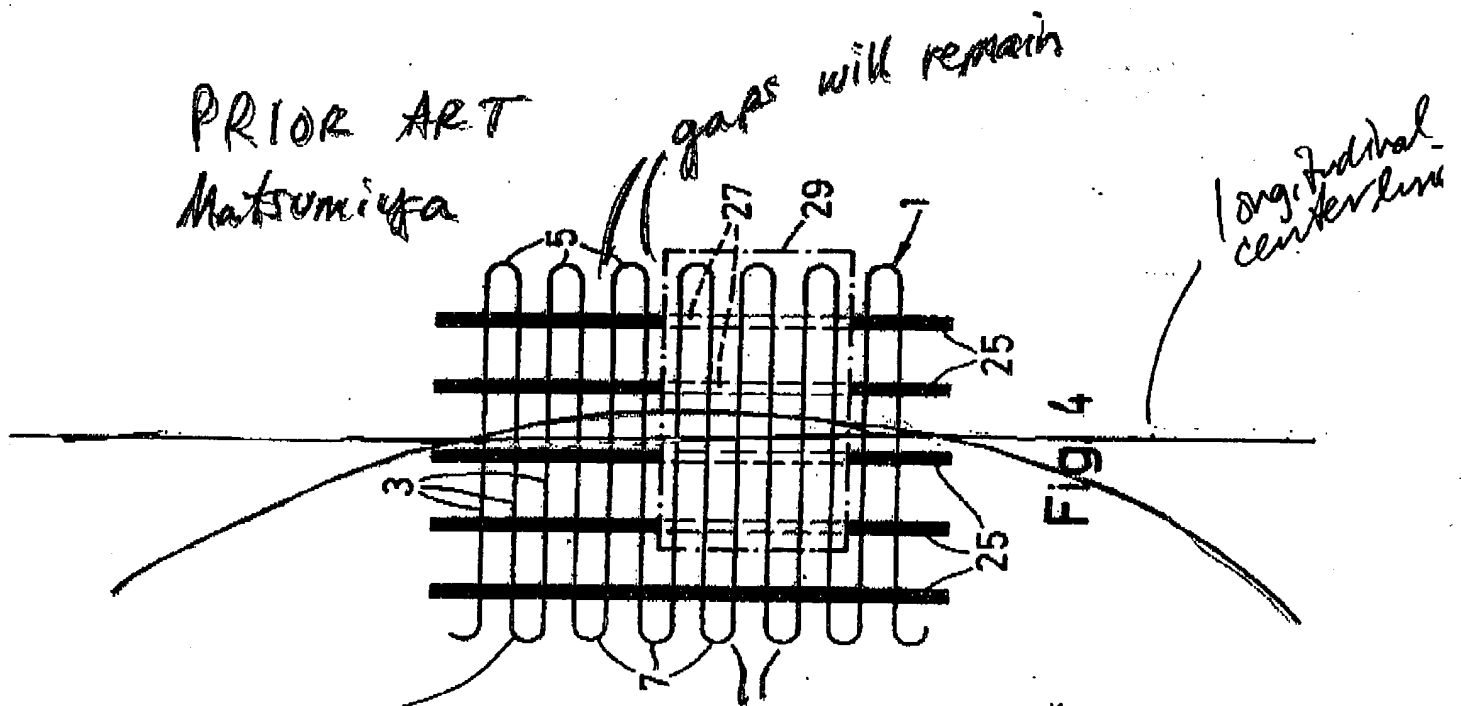 PRIOR ART
Matsumiya
gaps will remain
longitudinal
centerline
5
27
29
1
3
25
25
7
Fig 4